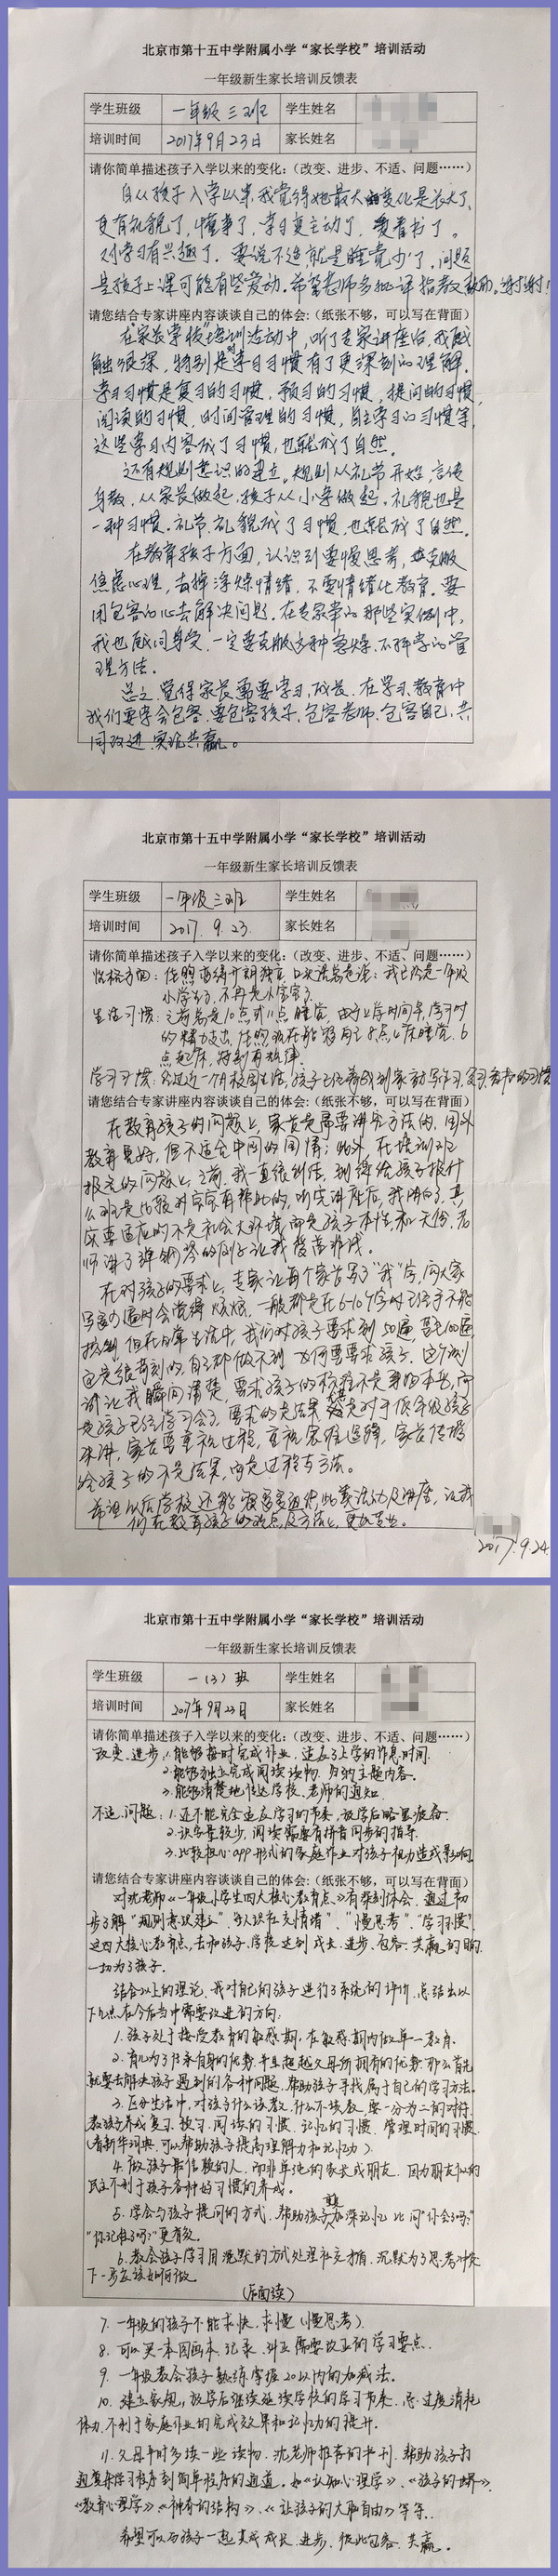 北京市第十五中学附属小学“家长学校”培训活动
一年级新生家长培训反馈表
学生班级 一年级三班 学生姓名
培训时间 2017年9月23日 家长姓名
请你简单描述孩子入学以来的变化：(改变、进步、不适、问题……)
自从孩子入学以来,我觉得她最大的变化是长大了、
更有礼貌了,懂事了,学习更主动了,爱看书了。
对学习有兴趣了。要说不适就是睡觉少了,问题
是孩子上课可能有些爱动.希望老师多批评指教、谢谢!
请您结合专家讲座内容谈谈自己的体会:(纸张不够,可以写在背面)
在“家长学校”培训活动中,听了专家讲座后,我感
触很深,特别是对学习习惯有了更深刻的理解.
学习习惯是复习的习惯,预习的习惯,提问的习惯,
阅读的习惯,时间管理的习惯,自主学习的习惯等,
这些学习内容成了习惯,也就成了自然。
还有规则意识的建立。规则从礼节开始,言传
身教,从家长做起,孩子从小学做起.礼貌也是
一种习惯.礼节、礼貌成了习惯,也就成了自然。
在教育孩子方面,认识到要慢思考,克服
焦虑心理,去掉浮燥情绪,不要情绪化教育。要
用包容的心去解决问题.在专家举的那些实例中,
我也感同身受,一定要克服这种急燥、不科学的管
理方法。
总之,觉得家长需要学习、成长,在学习、教育中
我们要学会包容,要包容孩子,包容老师,包容自己,共
同改进,实现共赢。
北京市第十五中学附属小学“家长学校”培训活动
一年级新生家长培训反馈表
学生班级 一年级三班 学生姓名
培训时间 2017.9.23. 家长姓名
请你简单描述孩子入学以来的变化：(改变、进步、不适、问题……)
性格方面:住照变得开朗独立,口头语总是说:我已经是一年级
小学生了,不再是小宝宝了.
生活习惯:之前总是10点或11点睡觉,由于上学时间早,学习时
的精力支出,住照现在能够自主8点上床睡觉,6
点起床,特别有规律.
学习习惯:经过近一个月校园生活,孩子已经养成到家就写作习,复习,看书的习惯
请您结合专家讲座内容谈谈自己的体会:(纸张不够,可以写在背面)
在教育孩子的问题上,家长是需要讲究方法的,国外
教育虽好,但不适合中国的国情;此外,在培训班
报名的问题上,之前,我一直很纠结,到底给孩子报什
么班是比较对宝宝有帮助的,听完讲座后,我明白了,其
实要适应的不是社会大环境,而是孩子本性和天份,老
师讲了弹钢琴的例子让我受益非浅。
在对孩子的要求上,专家让每个家长写了“我”字,问大家
写多少遍时会觉得烦燥,一般都是在6-10个字时已经于不能
控制,但在日常生活中,我们对孩子要求到50遍甚至100遍
这是很苛刻的,自己都做不到,如何要要求孩子.这个测
试让我瞬间清楚,要求孩子的标准不是要的本书,而
是孩子已经学习会了,要求的是结果,尤其是对于低年级孩子
来讲,家长要重视过程,重视思维逻辑,家长传播
给孩子的不是结果,而是过程与方法。
希望以后学校还能多多组织此类活动及讲座,让我
们在教育孩子的观点及方法上,更加专业。
2017.9.24
北京市第十五中学附属小学“家长学校”培训活动
一年级新生家长培训反馈表
学生班级 一(3)班 学生姓名
培训时间 2017年9月23日 家长姓名
请你简单描述孩子入学以来的变化：(改变、进步、不适、问题……)
改变、进步:1.能够按时完成作业,适应了上学的作息时间.
2.能够独立完成阅读读物,归纳主题内容.
3.能够清楚地传达学校、老师的通知.
不适、问题:1.还不能完全适应学习的节奏,放学后略显疲惫.
2.识字量较少,阅读需要有拼音同步的指导.
3.比较担心app形式的家庭作业对孩子视力造成影响.
请您结合专家讲座内容谈谈自己的体会:(纸张不够,可以写在背面)
对沈老师《一年级小学生四大核心教育点》有深刻体会,通过初
步了解“规则意识建立”、“认识社交情绪”、“慢思考”、“学习习惯”
这四大核心教育点,去和孩子、学校达到成长、进步、包容、共赢的目的.
一切为了孩子.
结合以上的理论,我对自己的孩子进行了系统的评价,总结出以
下几点在今后当中需要改进的方向:
1.孩子处于接受教育的敏感期,在敏感期内做单一教育.
2.育儿为了传承自身的优势,并且超越父母所拥有的优势,那么首先
就要去解决孩子遇到的各种问题,帮助孩子寻找属于自己的学习方法.
3.区分生活中,对孩子什么该教,什么不该教,要一分为二的对待,
教孩子养成复习、预习、阅读的习惯、记忆的习惯、管理时间的习惯.
(看新华词典,可以帮助孩子提高理解力和记忆力)
4.做孩子最信赖的人,而非单纯的家长或朋友,因为朋友似的
民主不利于孩子各种好习惯的养成.
5.学会与孩子提问的方式,帮助孩子加深记忆,比问“你会了吗?”
“你记住了吗?”更有效.
6.教会孩子学习用沉默的方式处理社交矛盾,沉默为了思考冲突
下一步应该如何做.
(后面读)
7.一年级的孩子不能求快,求慢(慢思考).
8.可以买一本图画本,记录、纠正需要改正的学习要点.
9.一年级教会孩子熟练掌握20以内的加减法.
10.建立家规,放学后继续延续学校的学习节奏,忌过度消耗
体力,不利于家庭作业的完成效果和记忆力的提升.
11.父母平时多读一些读物,沈老师推荐的书刊,帮助孩子打
通复杂学习程序到简单程序的通道,如《认知心理学》、《孩子的世界》、
《教育心理学》、《神奇的结构》、《让孩子的大脑自由》等等.
希望可以与孩子一起达成成长、进步、彼此包容、共赢。